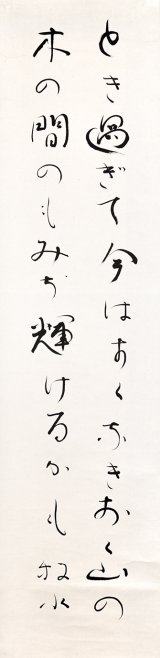 とき過ぎて今はすくなきおく山の
木の間のもみぢ輝けるかも 牧水